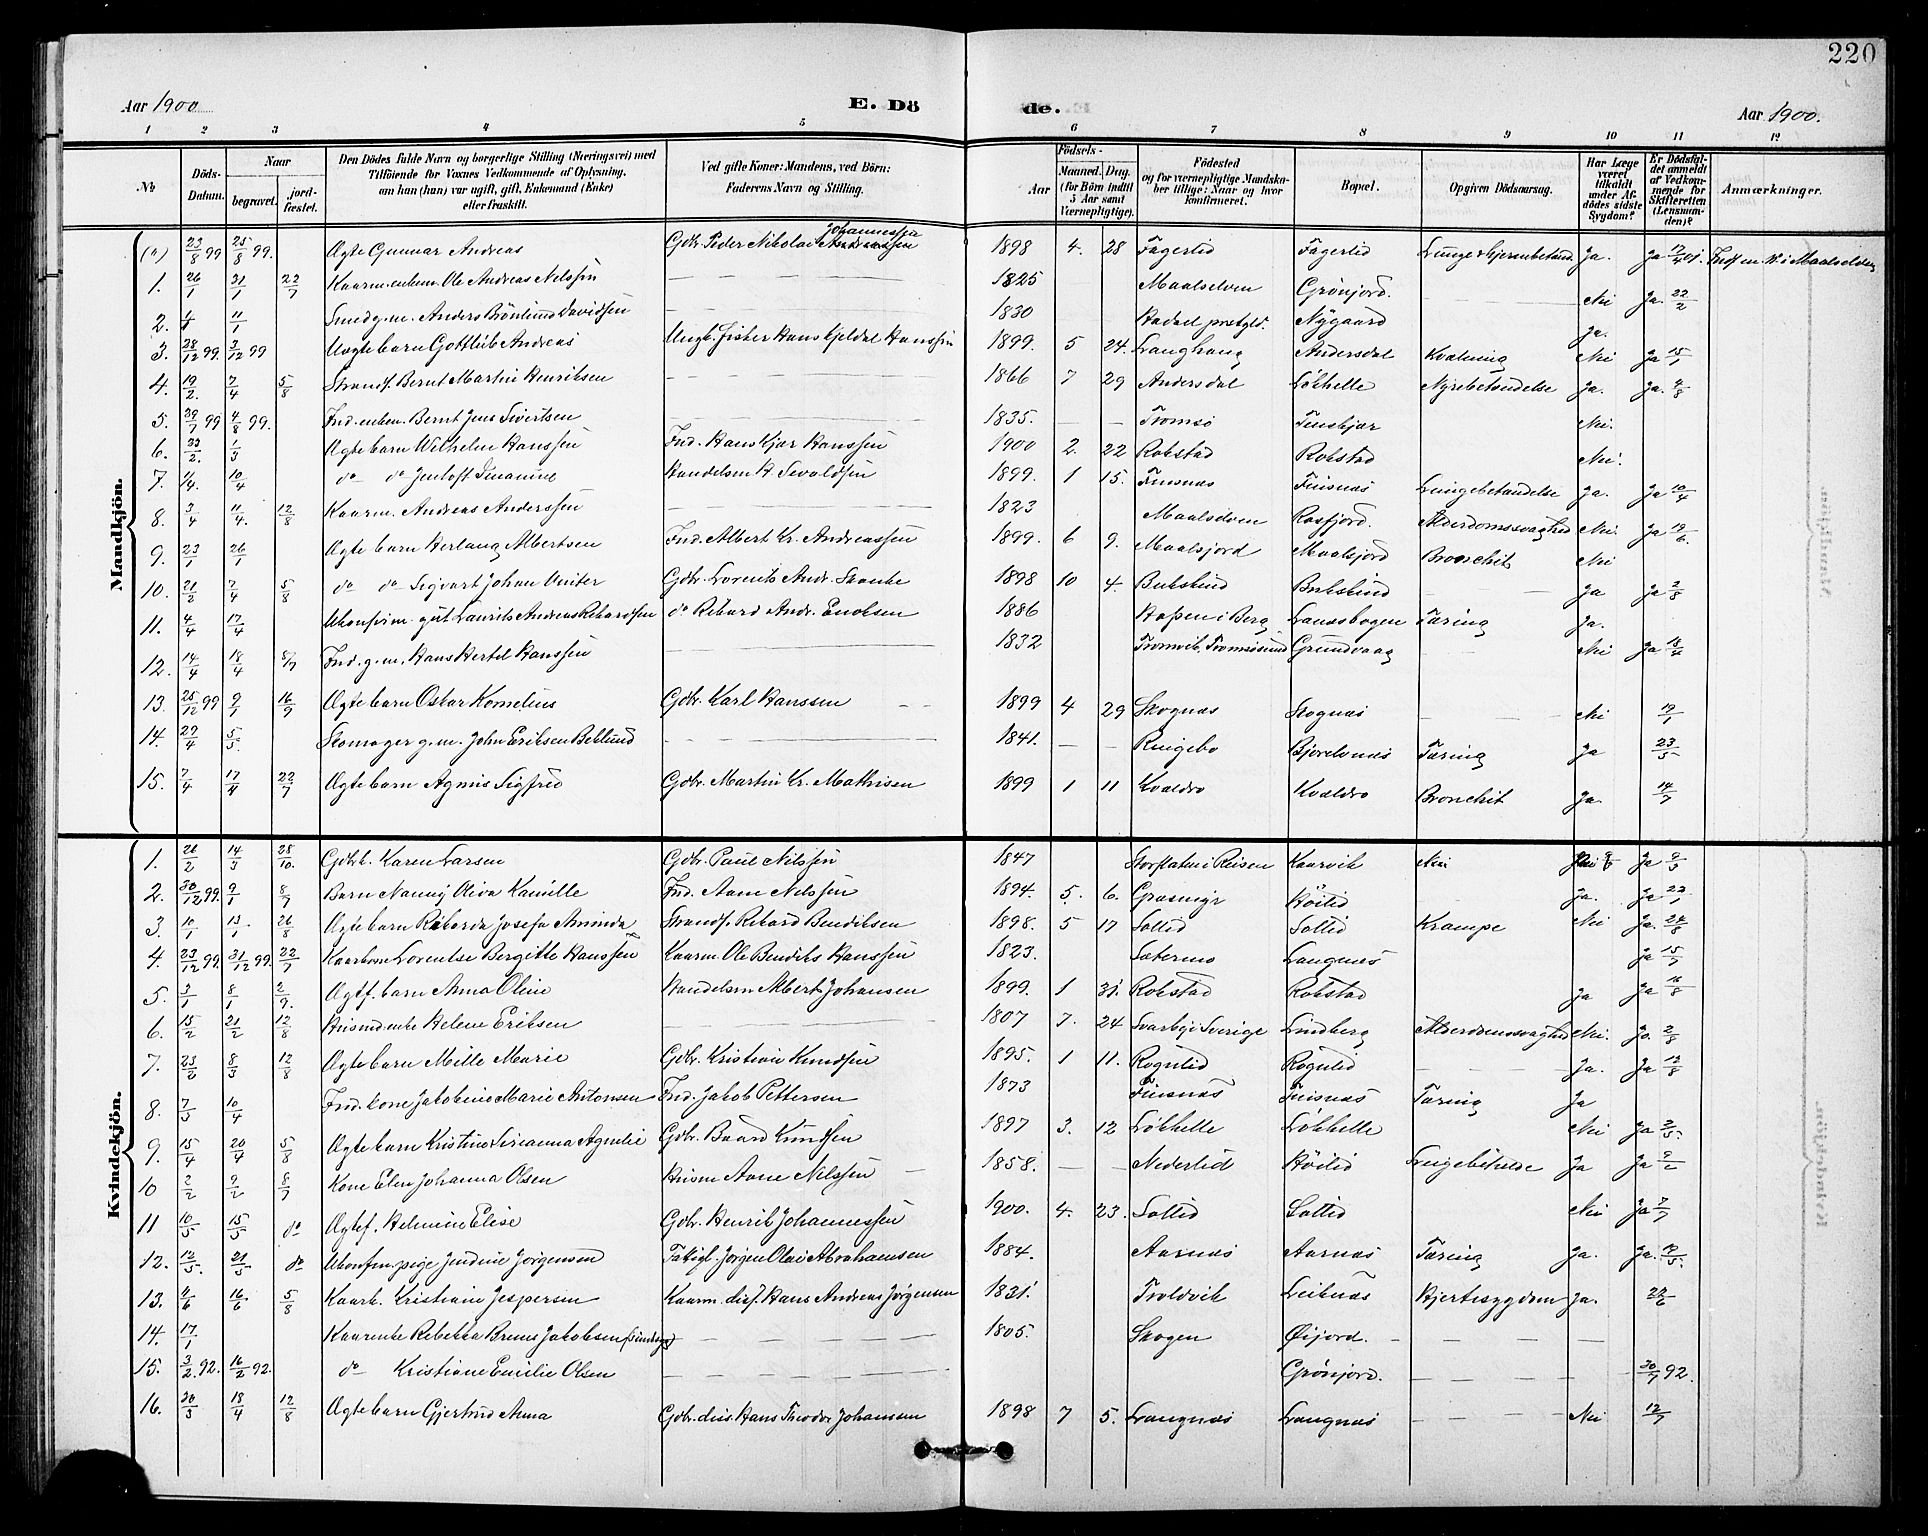 220
Aar 1900. E. Dö de. Aar 1900.
1 2 3 4 5 6 7 8 9 10 11 12
No Döds-Datum. Naar begravet. jord-fæstet. Den Dödes fulde Navn og borgerlige Stilling (Næringsvei) med Tilföiende for Voxnes Vedkommende af Oplysning, om han (hun) var ugift, gift, Enkemand (Enke) eller fraskilt. Ved gifte Koner: Mandens, ved Börn: Faderens Navn og Stilling. Födsels- Aar Maaned. Dag. (for Börn indtil 5 Aar samt Værnepligtige). Födested og for værnepligtige Mandskaber tillige: Naar og hvor konfirmeret. Bopæl. Opgiven Dödsaarsag. Har Læge været tilkaldt under Afdödes sidste Sygdom? Er Dödsfaldet anmeldt af Vedkommende for Skifteretten (Lensmanden)? Anmærkninger.
Mandkjön.
(a) 23/8 99 25/8 99. Ægte Gunnar Andreas Gdbr. Peder Nikolai Johannessen 1898 4. 28 Fagerlid Fagerlid Ja. Ja
1. 26/1 31/1 22/7 Kaarm. enkem. Ole Andreas Nilssen — — — 1825 Maalselven Grönjord. Nei Ja. 22/2
2. 11/1 Smed g.m. Anders Brönlund Davidsen — 1830 Hadsel prstgld. Nygaard Ja.
3. 28/12 99. 3/12 99 Uægte barn Gottlub Andreas Ungk. Fisker Hans Kjeldal Hanssen 1899. 5 24. Langhaug Andersdal Kvælning Nei Ja 15/1
4. 19/2. 7/4 5/8 Strands. Bernt Martin Henriksen — — — 1866 7 29 Andersdal Løkhelle Nyrebetændelse Ja. Ja. 4/8
5. 29/7 99 4/8 99. Ind. enkem. Bernt Jens Sivertsen — — — 1835. — — Tromsö Finskjær Nei.
6. 22/2. 1/3 Ægte barn Wilhelm Hanssen Ind. Hans Kjær Hanssen 1900 2. 22 Rokstad Rokstad Nei.
7. 10/4 do do Jentoft Handelsm A. Sevaldsen 1899. 1 15. Finsnæs Finsnæs Lungebetændelse Ja. Ja 10/4
8. 3/4 11/4. 12/8 Kaarm. Andreas Anderssen — — — 1823 Maalselven Rosfjord. Alderdomssvaghed Nei. Ja 19/6.
9. 23/1 26/1 Ægte barn Herlaug Albertsen Ind. Albert Kr. Andreassen 1899. 6 9. Maalsjord Maalsjord Bronchit Nei
10. 21/2 7/4 5/8 do do Sigvart Johan Uniter Gdbr. Lorents Andr. Skanke 1898 10 4. Bukskind Bukskind Ja Ja 2/8
11. 4/4 17/4 Ukonfirm. gut Laurits Andreas Rikardsen do Rikard Andr. Enoksen 1886 Hopen i Berg Lanesbogen Tæring Ja.
12. 14/4 18/4 8/7 Ind. g.m. Hans Hertel Hanssen — — — 1832 Tromvik, Tromsösund Grundvaag — Nei Ja 18/4
13. 25/12 99 9/1 16/9 Ægte barn Oskar Kornelius Gdbr. Karl Hanssen — — 1899 4 29 Skognæs Skognæs — Nei 19/1
14. 29/4 5/5. Skomager g.m. John Eriksen Beklund — — — 1841. — — Ringebo Bjorelvnæs Tæring Ja 23/5
15. 7/4 17/4 22/7 Ægte barn Agnus Sigfred Gdbr. Martin Kr. Mathisen 1899 1 11 Kvaldro Kvaldro Bronchit Ja. 14/7
Kvindekjön.
1. 26/2 14/3 28/10. Gdbrk. Karen Larsen Gdbr. Paul Nilssen 1847 Storslaten i Reisen Kaarvik Nei Ja 9/3
2. 30/12 99. 9/1 8/7 Barn Nanny Oliva Kamille Ind. Aane Nilssen 1894. 5. 6. Grasmyr Höilid Ja. Ja 23/1
3. 10/1 13/1 26/8 Ægte barn Rikarda Josefa Aminda Strands. Rikard Bendiksen 1898. 5 17 Sollid Sollid Krampe Nei Ja. 24/8
4. 23/12 99. 31/12 99. 22/7 Lorentse Bergitte Hanssen Kaarm. Ole Bendiks Hanssen 1823. Sætermo Langnes Ja 15/7
5. 3/1 8/1 2/9. Ægtf. barn Anna Oline Handelsm Albert Johansen 1899. 1 31. Rokstad Rokstad Ja Ja 16/8
6. 15/2 21/2 12/8 Husmdenke Helene Eriksen — — — 1807 7. 24 Svarbyi Sverige Lindberg Alderdomssvaghed Nei. Ja. 2/8
7. 23/2 8/3 12/8 Ægte barn Mille Marie Gdbr. Kristian Knudsen 1895. 1 11. Rognlid Rognlid — Ja. Ja 12/8
8. 7/3 10/4 Ind. kone Jakobine Marie Antonsen Ind. Jakob Pettersen 1873 Finsnæs Finsnæs Tæring Ja
9. 15/4 20/4 5/8 Ægte barn Kristine Sirianna Agnelie Gdbr. Baard Knudsen 1897 3. 12 Løkhelle Løkhelle Nei Ja 2/5.
10 2/2 9/2 8/7 Kone Elen Johanna Olsen Husm Aane Nilssen — 1858. — — Nederlid Höilid Ja Ja 9/2
11 10/5 15/5 do Ægtef. Helmine Elise Gdbr. Henrik Johannessen 1900. 4. 23. Sollid Sollid Nei Ja 7/7
12. 12/5. 21/5 do Ukonfm. pige Jendine Jörgensen Fattigl. Jörgen Olai Abrahamsen 1884. Aarnæs Aarnæs Tæring Ja. Ja. 18/5.
13. 11/6 16/6 5/8 Kaark. Kristiane Jespersen Kaarm. diss. Hans Andreas Jørgensen 1831. Troldvik Leiknæs Hjertesygdom Ja. 22/6
14. 17/1 Kaarenke Rebekka Brun Jakobsen — — — 1805. Skogen Øijord. — — —
15. 3/2. 92. 16/2 92. do Kristiane Emilie Olsen — — — Grönjord. — — — 30/7 92.
16. 30/3 18/4 12/8 Ægte barn Gjertrud Anna Gdbr. diss. Hans Theodor Johansen 1898 7 5. Langnæs Langnæs — — Nei 12/7